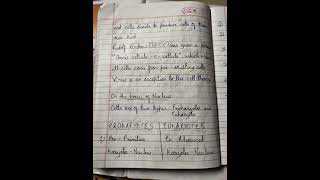 and cells divide to produce cells of their
own kind
Rudolf Virchow (1855) has given a
"Omnis cellula - e - cellula", which
all cells come from pre-existing cells.
Virus is an exception to the cell theory
On the basis of Nucleus
Cells are of two types - Prokaryotes and
Eukaryotes
PROKARYOTES | EUKARYOTES
Pro - Primitive
Eu - Advanced
Karyotes - Nucleus
Karyotes - Nucleus